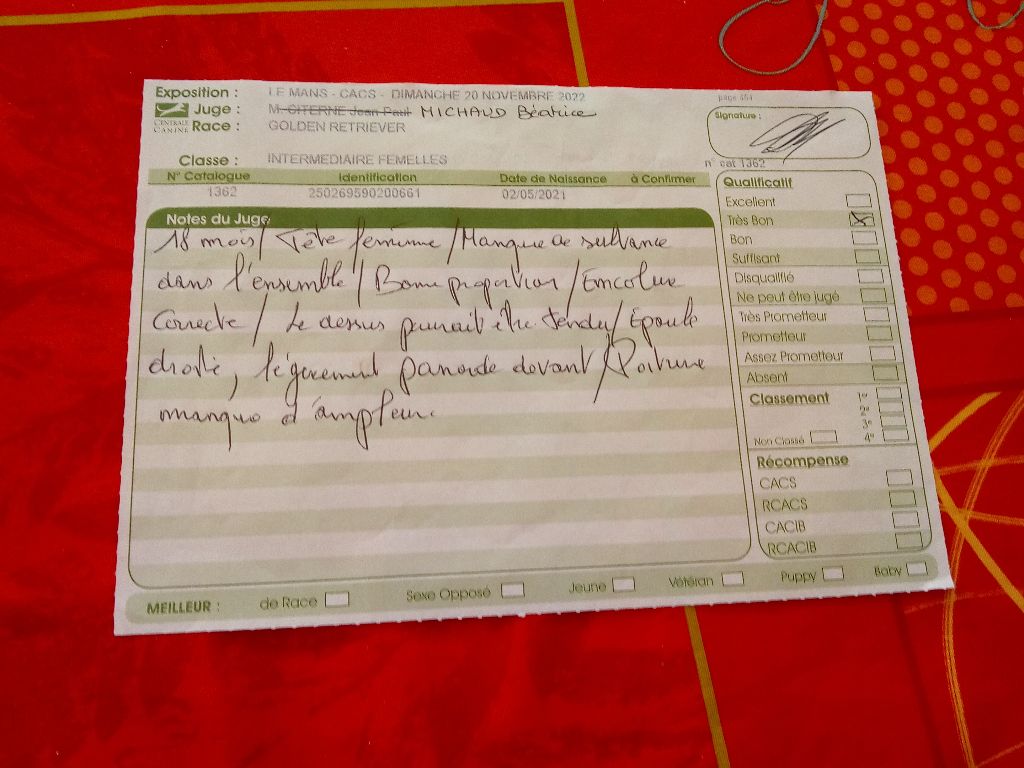 Exposition : LE MANS - CACS - DIMANCHE 20 NOVEMBRE 2022
page 454
Juge : M. CITERNE Jean Paul MICHAUD Béatrice
Signature :
CENTRALE CANINE
Race : GOLDEN RETRIEVER
Classe : INTERMEDIAIRE FEMELLES
n° cat 1362
N° Catalogue Identification Date de Naissance à Confirmer
1362 250269590200661 02/05/2021
Notes du Juge
18 mois / Tête féminine / Manque de
dans l'ensemble / Bonne proportion / Encolure
Correcte / Le dessus pourrait être tendu / Epaule
droite, légèrement panarde devant / Poitrine
manque d'ampleur.
Qualificatif
Excellent
Très Bon
Bon
Suffisant
Disqualifié
Ne peut être jugé
Très Prometteur
Prometteur
Assez Prometteur
Absent
Classement 1er
2e
3e
Non Classé 4e
Récompense
CACS
RCACS
CACIB
RCACIB
MEILLEUR : de Race Sexe Opposé Jeune Vétéran Puppy Baby